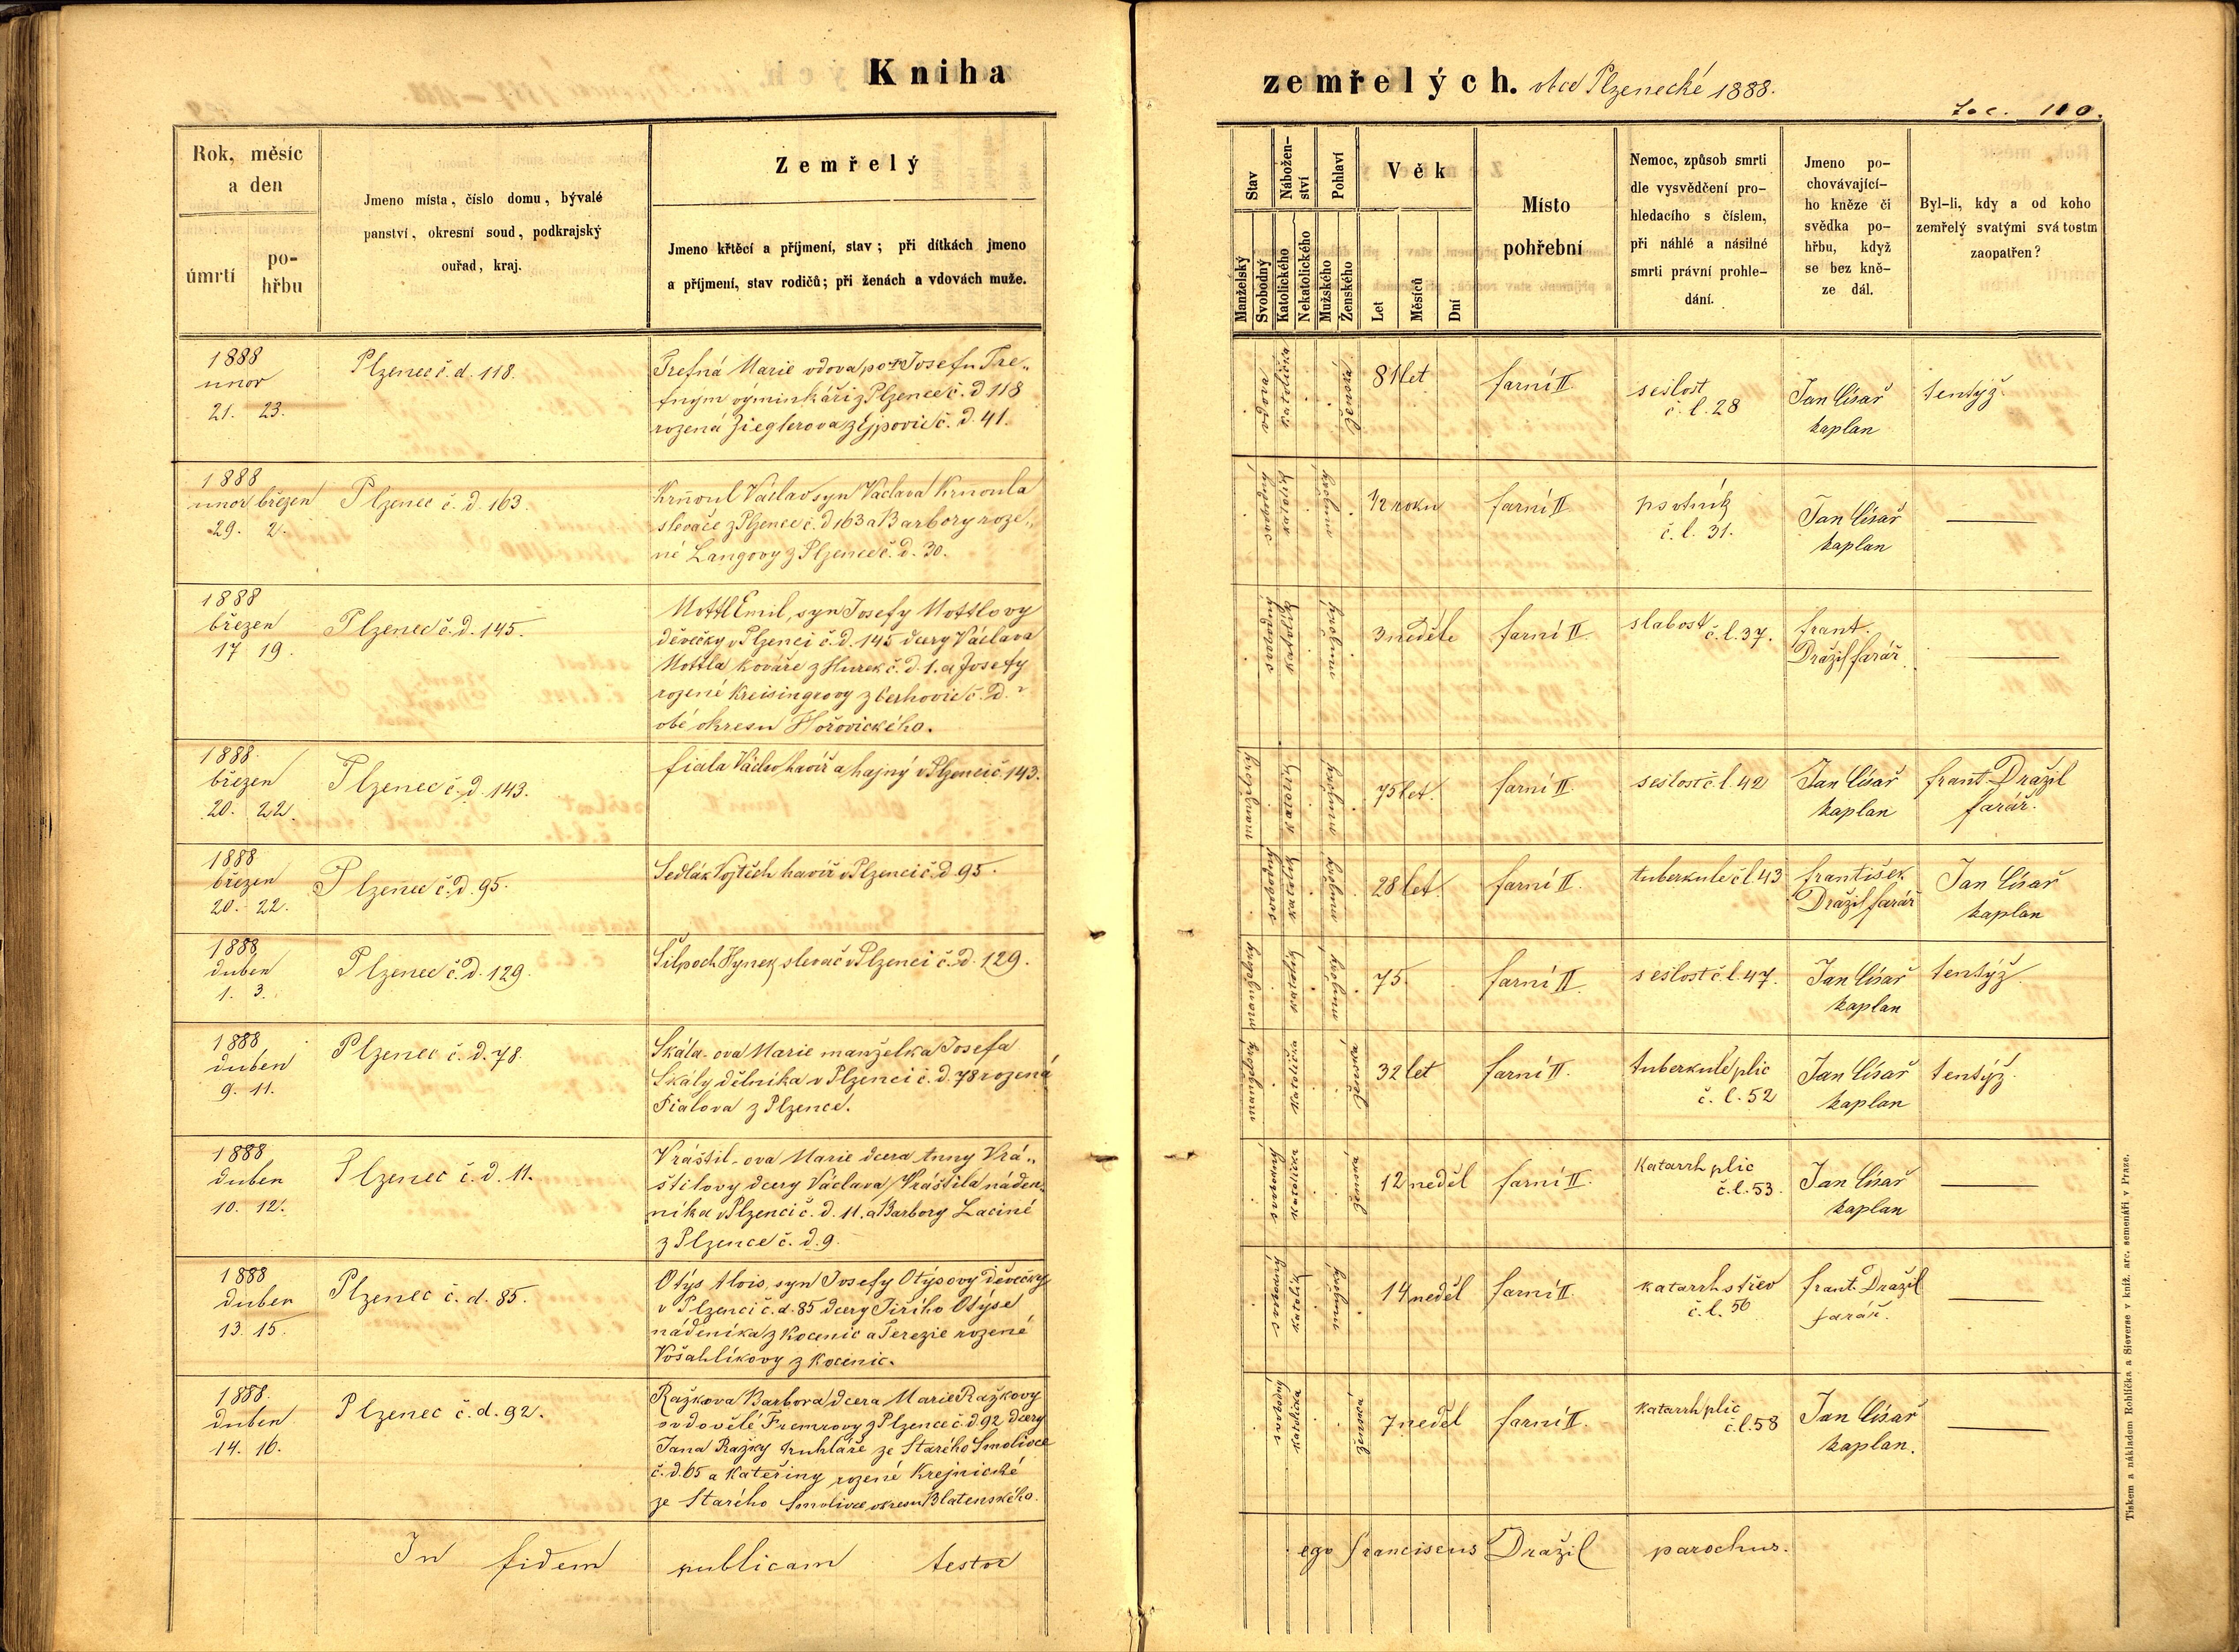 Kniha
zemřelých. obce Plzenecké 1888.
Fol. 110.
Rok, měsíc
a den
úmrtí
po-
hřbu
Jmeno místa, číslo domu, bývalé
panství, okresní soud, podkrajský
ouřad, kraj.
Zemřelý
Jmeno křtěcí a příjmení, stav; při dítkách jmeno
a příjmení, stav rodičů; při ženách a vdovách muže.
Stav
Manželský
Svobodný
Nábožen-
ství
Katolického
Nekatolického
Pohlaví
Mužského
Ženského
Věk
Let
Měsíců
Dní
Místo
pohřební
Nemoc, způsob smrti
dle vysvědčení pro-
hledacího s číslem,
při náhlé a násilné
smrti právní prohle-
dání.
Jmeno po-
chovávající-
ho kněze či
svědka po-
hřbu, když
se bez kně-
ze dál.
Byl-li, kdy a od koho
zemřelý svatými svátostmi
zaopatřen?
1888
unor
21. 23.
Plzenec č. d. 118.
Trefná Marie vdova po † Josefu Tre„
fným výminkáři z Plzence č. d 118
rozená Zieglerova z Ejpovic č. d. 41.
vdova
katolička
ženská
81 let
farní II.
sešlost
č. l. 28
Jan Císař
kaplan
tentýž.
1888
unor březen
29. 2.
Plzenec č. d. 163.
Krňoul Václav syn Václava Krňoula
slevače z Plzence č. d 163 a Barbory roze„
né Langovy z Plzence č. d. 30.
svobodný
katolík
mužský
1/2 roku
farní II
psotník
č. l. 31.
Jan Císař
kaplan
1888
březen
17 19.
Plzenec č. d. 145.
Mottl Emil, syn Josefy Mottlovy
děvečky v Plzenci č. d. 145 dcery Václava
Mottla kováře z Hurek č. d. 1. a Josefy
rozené Kreisingrovy z Cerhovic č. d. ?
obé okresu Hořovického.
svobodný
katolík
mužský
3 neděle
farní II
slabost č. l. 37.
frant.
Dražil farář
1888
březen
20. 22.
Plzenec č. d. 143.
fiala Václav havíř a hajný v Plzenci č. 143.
manželský
katolík
mužský
75 let.
farní II.
sešlost č. l. 42
Jan Císař
kaplan
frant. Dražil
farář.
1888
březen
20. 22.
Plzenec č. d. 95.
Sedlák Vojtěch havíř v Plzenci č. d 95.
svobodný
katolík
mužský
28 let.
farní II.
tuberkule č l. 43
františek
Dražil farář
Jan Císař
kaplan
1888
duben
1. 3.
Plzenec č. d. 129.
Šilpoch Hynek slevač v Plzenci č. d. 129.
manželský
katolík
mužský
75.
farní II.
sešlost č. l. 47.
Jan Císař
kaplan
tentýž
1888
duben
9. 11.
Plzenec č. d. 78.
Skála-ova Marie manželka Josefa
Skály dělníka v Plzenci č. d. 78 rozená
Fialova z Plzence.
manželský
katolička
ženská
32 let
farní II.
tuberkule plic
č. l. 52
Jan Císař
kaplan
tentýž.
1888
duben
10. 12.
Plzenec č. d. 11.
Vráštil-ova Marie dcera Anny Vrá„
štilovy dcery Václava Vráštila náden„
níka v Plzenci č. d. 11. a Barbory Laciné
z Plzence č. d. 9.
svobodný
katolička
ženská
12 neděl
farní II.
Katarrh plic
č. l. 53.
Jan Císař
kaplan
1888
duben
13. 15.
Plzenec č. d. 85.
Otýs Alois, syn Josefy Otýsovy děvečky
v Plzenci č. d. 85 dcery Jiřího Otýse
nádeníka z Kocenic a Terezie rozené
Vošahlíkovy z Kocenic.
svobodný
katolík
mužský
14 neděl
farní II.
katarrh střev
č. l. 56
frant. Dražil
farář.
1888.
duben
14. 16.
Plzenec č. d. 92.
Ražkova Barbora dcera Marie Ražkovy
ovdovělé Fremrovy z Plzence č. d. 92 dcery
Jana Ražky truhláře ze Starého Smolivce
č. d. 65 a Kateřiny rozené Krejnické
ze Starého Smolivce okresu Blatenského.
svobodný
katolička
ženská
7 neděl
farní II.
Katarrh plic
č. l. 58
Jan Císař
kaplan.
In fidem publicam testor
ego franciscus Dražil parochus.
Tiskem a nákladem Rohlíčka a Sieverse v kníž. arc. semenáři v Praze.